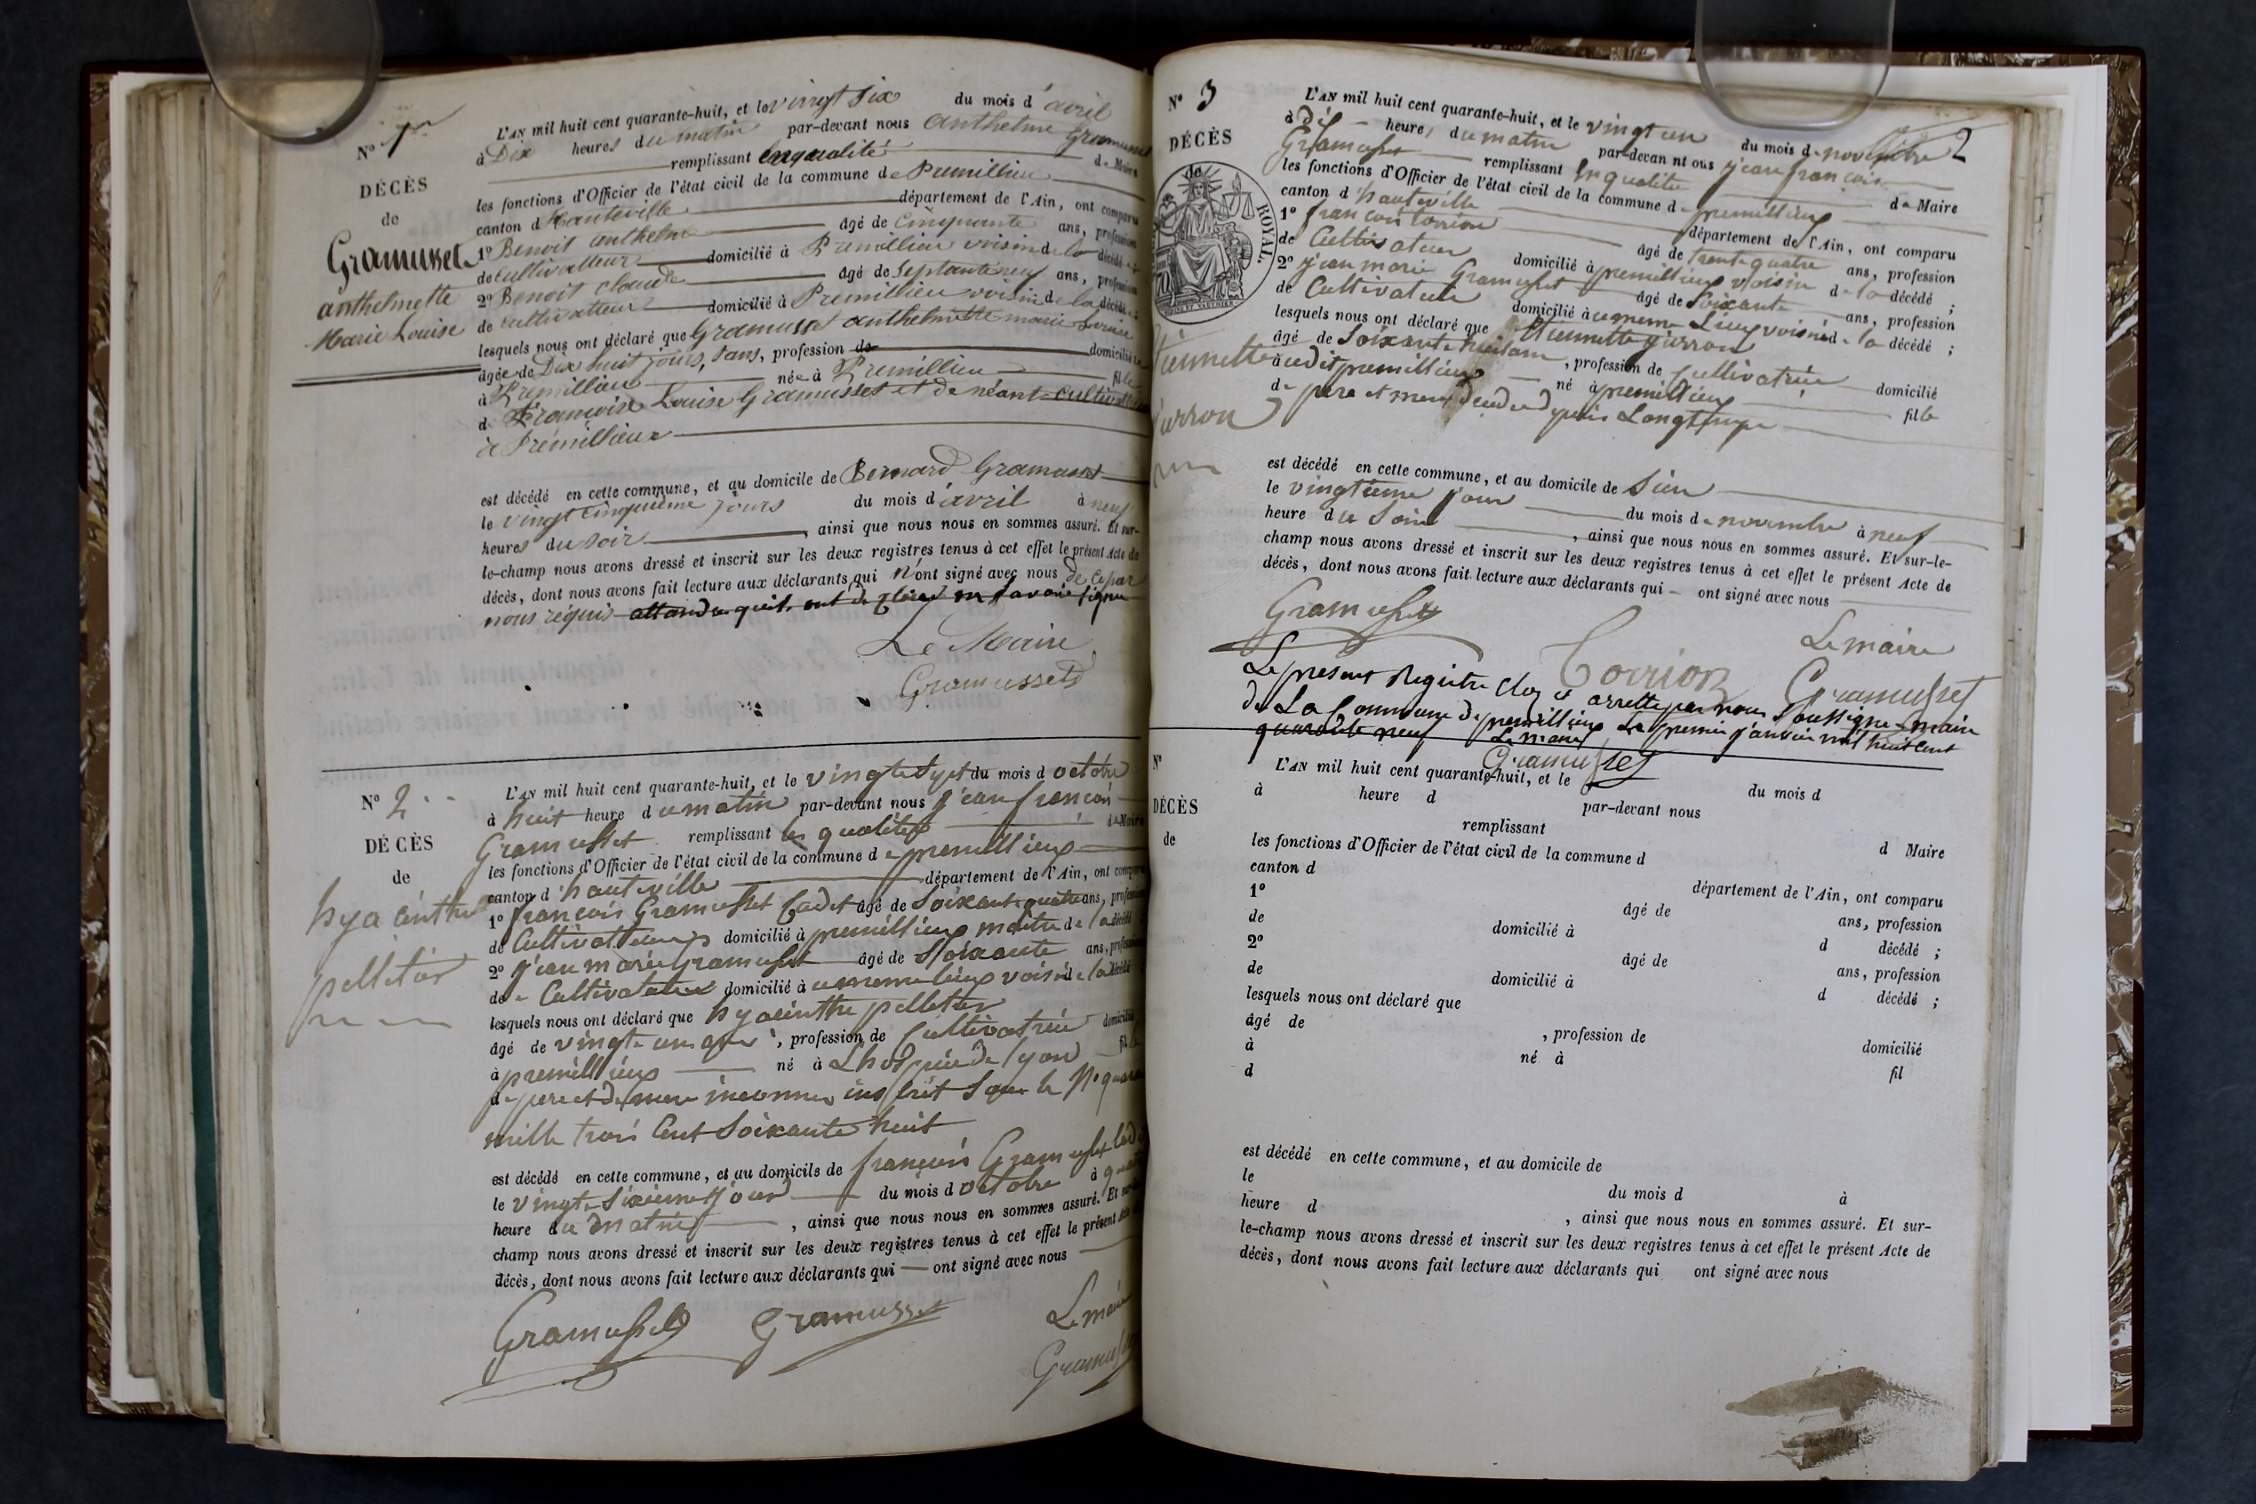 N° 1er
DÉCÈS
de
Gramusset
anthelmette
Marie Louise
L'AN mil huit cent quarante-huit, et le vingt six du mois d'avril
à Dix heures du matin par-devant nous anthelme Gramusset
remplissant en qualité de Maire
les fonctions d'Officier de l'état civil de la commune de Premillieu
canton d'hauteville département de l'Ain, ont comparu
1° Benoit anthelme âgé de Cinquante ans, profession
de cultivatteur domicilié à Premillieu voisin de la décédée
2° Benoit claude âgé de Septante neuf ans, profession
de cultivatteur domicilié à Premillieu voisin de la décédée
lesquels nous ont déclaré que Gramusset anthelmette marie Louise
âgée de Dix huit jours, sans, profession de domiciliée
à Premillieu née à Premillieu fille
de Françoise Louise Gramusset et de néant cultivatrice
à Prémillieux
est décédé en cette commune, et au domicile de Bernard Gramusset
le vingt cinquième jours du mois d'avril à neuf
heures du soir, ainsi que nous nous en sommes assuré. Et sur-
le-champ nous avons dressé et inscrit sur les deux registres tenus à cet effet le présent Acte de
décès, dont nous avons fait lecture aux déclarants qui n'ont signé avec nous de ce par
nous réquis attandu qu'ils ont déclaré ne savoir signer
Le Maire
Gramusset
N° 2
DÉCÈS
de
hyacinthe
pelletier
L'AN mil huit cent quarante-huit, et le vingt sept du mois d octobre
à huit heure du matin par-devant nous jean françois
Gramusset remplissant en qualité de Maire
les fonctions d'Officier de l'état civil de la commune de premillieux
canton d'hauteville département de l'Ain, ont comparu
1° françois Gramusset Cadet âgé de Soixante quatre ans, profession
de Cultivatteur domicilié à premillieux maître de la décédé
2° jean marie Gramusset âgé de Soixante ans, profession
de Cultivateur domicilié à u meme lieux voisin de la décédé
lesquels nous ont déclaré que hyacinthe pelletier
âgé de vingt un ans, profession de Cultivatrice domicilié
à premillieux né à Lhospice de lyon fille
de pere et de mere inconnus inscrit sous le N° quarante
mille trois Cent Soixante huit
est décédé en cette commune, et au domicile de françois Gramusset Cadet
le vingt-sixieme jour du mois d octobre à quatre
heure du matin, ainsi que nous nous en sommes assuré. Et sur-le-
champ nous avons dressé et inscrit sur les deux registres tenus à cet effet le présent Acte de
décès, dont nous avons fait lecture aux déclarants qui ont signé avec nous
Gramusset Gramusset Le maire
Gramusset
2
N° 3
DÉCÈS
de
ROYAL.
Etiennette
jurron
L'AN mil huit cent quarante-huit, et le vingt un du mois de novembre
à Dix heures du matin par-devan nt ous jean françois
Gramusset remplissant en qualité de Maire
les fonctions d'Officier de l'état civil de la commune de premillieux
canton d'hauteville département de l'Ain, ont comparu
1° françois torrion âgé de trente quatre ans, profession
de Cultivateur domicilié à premillieux voisin de la décédé ;
2° jean marie Gramusset âgé de Soixante ans, profession
de Cultivateur domicilié à u meme Lieux voisin de la décédé ;
lesquels nous ont déclaré que Etiennette jurron
âgé de Soixante huit ans, profession de Cultivatrice domicilié
à udit premillieux né à premillieux fille
de pere et mere décédé depuis Longtemps
est décédé en cette commune, et au domicile de Sien
le vingtieme jour du mois de novembre à neuf
heure du Soir, ainsi que nous nous en sommes assuré. Et sur-le-
champ nous avons dressé et inscrit sur les deux registres tenus à cet effet le présent Acte de
décès, dont nous avons fait lecture aux déclarants qui ont signé avec nous
Gramusset Torrion Le maire
Gramusset
Le present Registre Clos et arretté par nous Soussigné maire
de La Commune de premillieux Le premier janvier mil huit Cent
quarante neuf Le maire
Gramusset
N°
DÉCÈS
de
L'AN mil huit cent quarante-huit, et le du mois d
à heure d par-devant nous
remplissant d Maire
les fonctions d'Officier de l'état civil de la commune d
canton d département de l'Ain, ont comparu
1° âgé de ans, profession
de domicilié à d décédé ;
2° âgé de ans, profession
de domicilié à d décédé ;
lesquels nous ont déclaré que
âgé de , profession de domicilié
à né à fil
d
est décédé en cette commune, et au domicile de
le du mois d à
heure d , ainsi que nous nous en sommes assuré. Et sur-
le-champ nous avons dressé et inscrit sur les deux registres tenus à cet effet le présent Acte de
décès, dont nous avons fait lecture aux déclarants qui ont signé avec nous